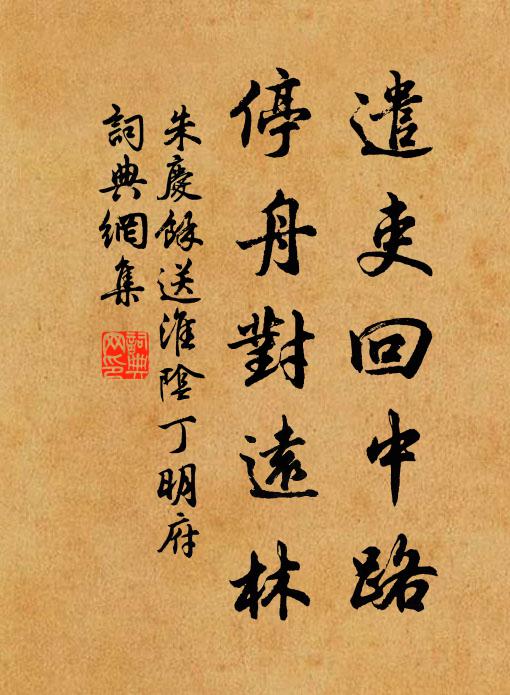 遣吏回中路
停舟對遠林
朱慶餘送淮陰丁明府
詞典網集